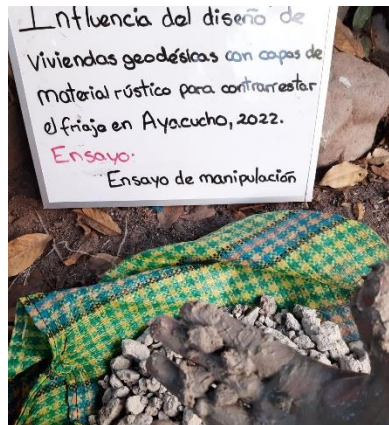 Influencia del diseño de
Viviendas geodésicas con capas de
material rústico para contrarrestar
el friaje en Ayacucho, 2022.
Ensayo:
Ensayo de manipulación